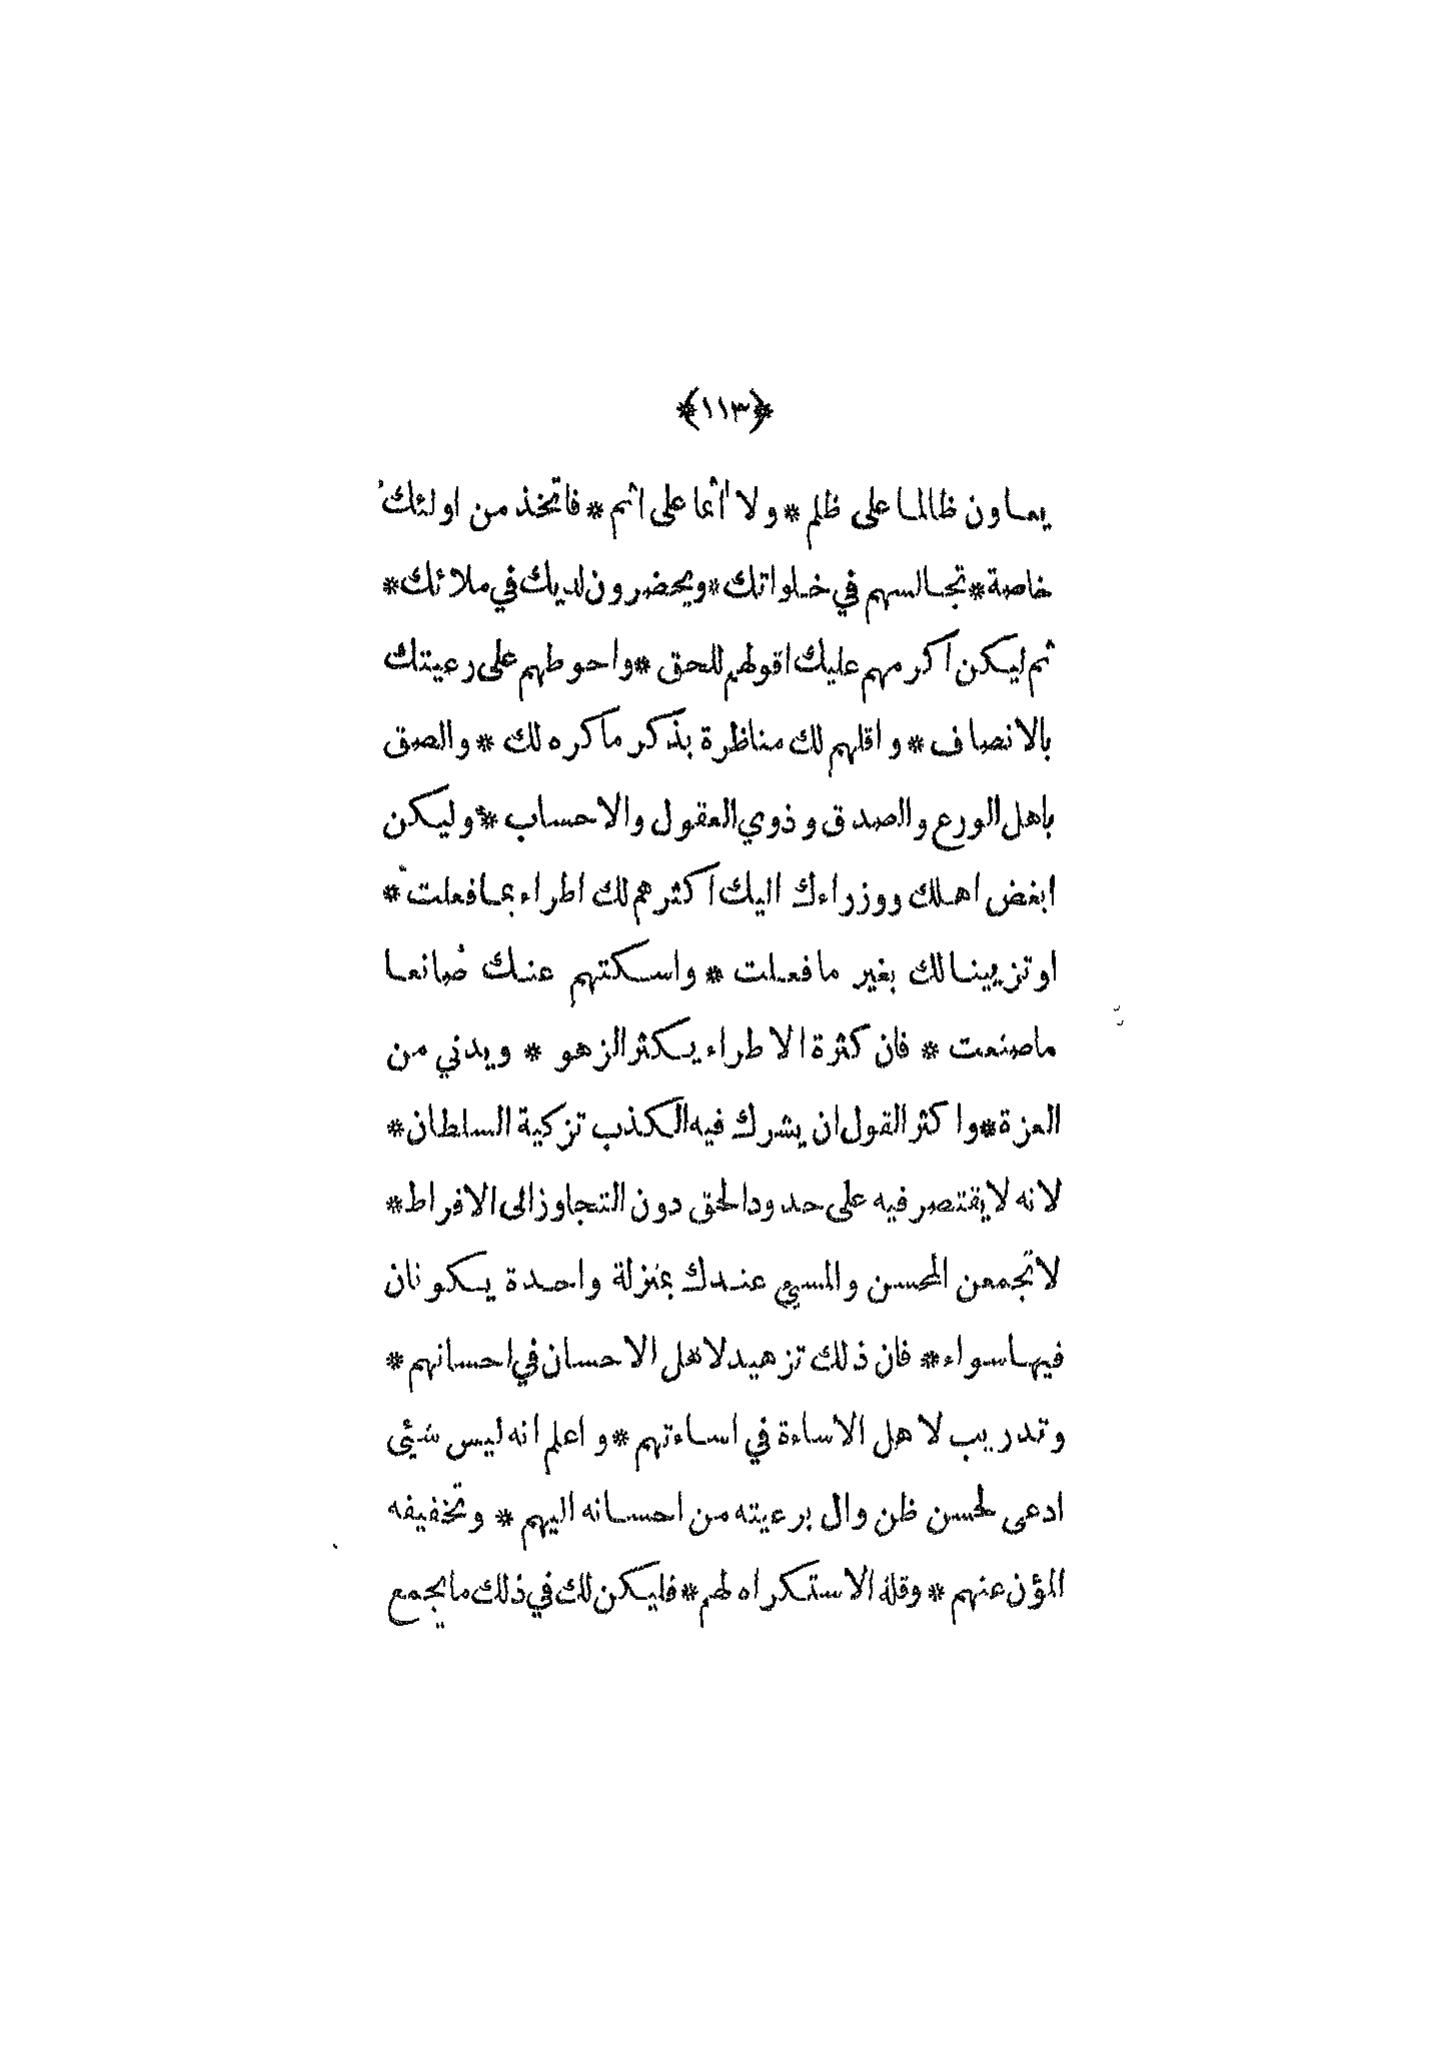 ﴿١١٣﴾
يعاون ظالما على ظلم * ولا اثما على اثم * فاتخذ من اولئك
خاصة * تجالسهم في خلواتك * ويحضرون لديك في ملائك *
ثم ليكن اكرمهم عليك اقولهم للحق * واحوطهم على رعيتك
بالانصاف * واقلهم لك مناظرة بذكر ما كره لك * والصق
باهل الورع والصدق وذوي العقول والاحساب * وليكن
ابغض اهلك ووزراءك اليك اكثرهم لك اطراء بما فعلت *
او تزيينا لك بغير ما فعلت * واسكتهم عنك صانعا
ما صنعت * فان كثرة الاطراء يكثر الزهو * ويدني من
العزة * واكثر القول ان يشرك فيه الكذب تزكية السلطان *
لانه لا يقتصر فيه على حدود الحق دون التجاوز الى الافراط *
لا تجمعن المحسن والمسيء عندك بمنزلة واحدة يكونان
فيها سواء * فان ذلك تزهيد لاهل الاحسان في احسانهم *
وتدريب لاهل الاساءة في اساءتهم * واعلم انه ليس شيئ
ادعى لحسن ظن وال برعيته من احسانه اليهم * وتخفيفه
المؤن عنهم * وقلة الاستكراه لهم * فليكن لك في ذلك ما يجمع